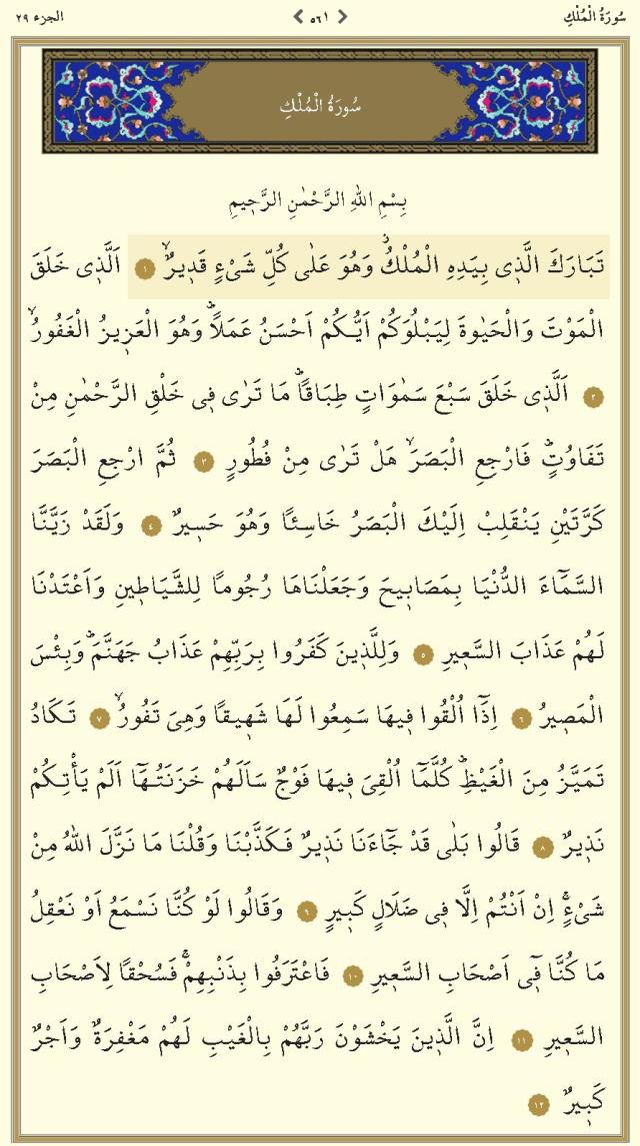 سُورَةُ الْمُلْكِ ٥٦١ الجزء ٢٩
سُورَةُ الْمُلْكِ
بِسْمِ اللهِ الرَّحْمٰنِ الرَّحٖيمِ
تَبَارَكَ الَّذٖى بِيَدِهِ الْمُلْكُؗ وَهُوَ عَلٰى كُلِّ شَىْءٍ قَدٖيرٌۙ ١ اَلَّذٖى خَلَقَ
الْمَوْتَ وَالْحَيٰوةَ لِيَبْلُوَكُمْ اَيُّكُمْ اَحْسَنُ عَمَلًاؕ وَهُوَ الْعَزٖيزُ الْغَفُورُۙ
٢ اَلَّذٖى خَلَقَ سَبْعَ سَمٰوَاتٍ طِبَاقًاؕ مَا تَرٰى فٖى خَلْقِ الرَّحْمٰنِ مِنْ
تَفَاوُتٍؕ فَارْجِعِ الْبَصَرَۙ هَلْ تَرٰى مِنْ فُطُورٍ ٣ ثُمَّ ارْجِعِ الْبَصَرَ
كَرَّتَيْنِ يَنْقَلِبْ اِلَيْكَ الْبَصَرُ خَاسِئًا وَهُوَ حَسٖيرٌ ٤ وَلَقَدْ زَيَّنَّا
السَّمَٓاءَ الدُّنْيَا بِمَصَابٖيحَ وَجَعَلْنَاهَا رُجُومًا لِلشَّيَاطٖينِ وَاَعْتَدْنَا
لَهُمْ عَذَابَ السَّعٖيرِ ٥ وَلِلَّذٖينَ كَفَرُوا بِرَبِّهِمْ عَذَابُ جَهَنَّمَؕ وَبِئْسَ
الْمَصٖيرُ ٦ اِذَٓا اُلْقُوا فٖيهَا سَمِعُوا لَهَا شَهٖيقًا وَهِىَ تَفُورُۙ ٧ تَكَادُ
تَمَيَّزُ مِنَ الْغَيْظِؕ كُلَّمَٓا اُلْقِىَ فٖيهَا فَوْجٌ سَاَلَهُمْ خَزَنَتُهَٓا اَلَمْ يَأْتِكُمْ
نَذٖيرٌ ٨ قَالُوا بَلٰى قَدْ جَٓاءَنَا نَذٖيرٌ فَكَذَّبْنَا وَقُلْنَا مَا نَزَّلَ اللهُ مِنْ
شَىْءٍۚ اِنْ اَنْتُمْ اِلَّا فٖى ضَلَالٍ كَبٖيرٍ ٩ وَقَالُوا لَوْ كُنَّا نَسْمَعُ اَوْ نَعْقِلُ
مَا كُنَّا فٖٓى اَصْحَابِ السَّعٖيرِ ١٠ فَاعْتَرَفُوا بِذَنْبِهِمْۚ فَسُحْقًا لِاَصْحَابِ
السَّعٖيرِ ١١ اِنَّ الَّذٖينَ يَخْشَوْنَ رَبَّهُمْ بِالْغَيْبِ لَهُمْ مَغْفِرَةٌ وَاَجْرٌ
كَبٖيرٌ ١٢